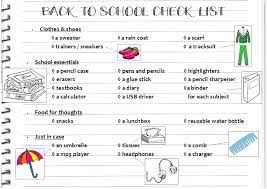 BACK TO SCHOOL CHECK LIST
• Clothes & shoes
◊ a sweater ◊ a rain coat ◊ a scarf
◊ trainers / sneakers ◊ a tracksuit
• School essentials
◊ a pencil case ◊ pens and pencils ◊ highlighters
◊ erasers ◊ glue stick ◊ a pencil sharpener
◊ textbooks ◊ a diary ◊ binder
◊ a calculator ◊ a USB driver for each subject
• Food for thoughts
◊ snacks ◊ a lunchbox ◊ reusable water bottle
• Just in case
◊ an umbrella ◊ tissues ◊ a comb
◊ a mpy player ◊ headphones ◊ a charger